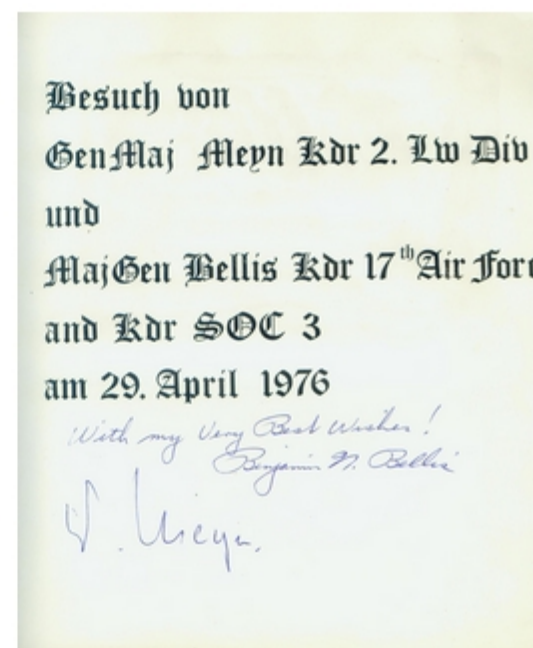 Besuch von
GenMaj Meyn Kdr 2. Lw Div
und
MajGen Bellis Kdr 17th Air Forc
and Kdr SOC 3
am 29. April 1976
With my Very Best Wishes!
Benjamin N. Bellis
W. Meyn.